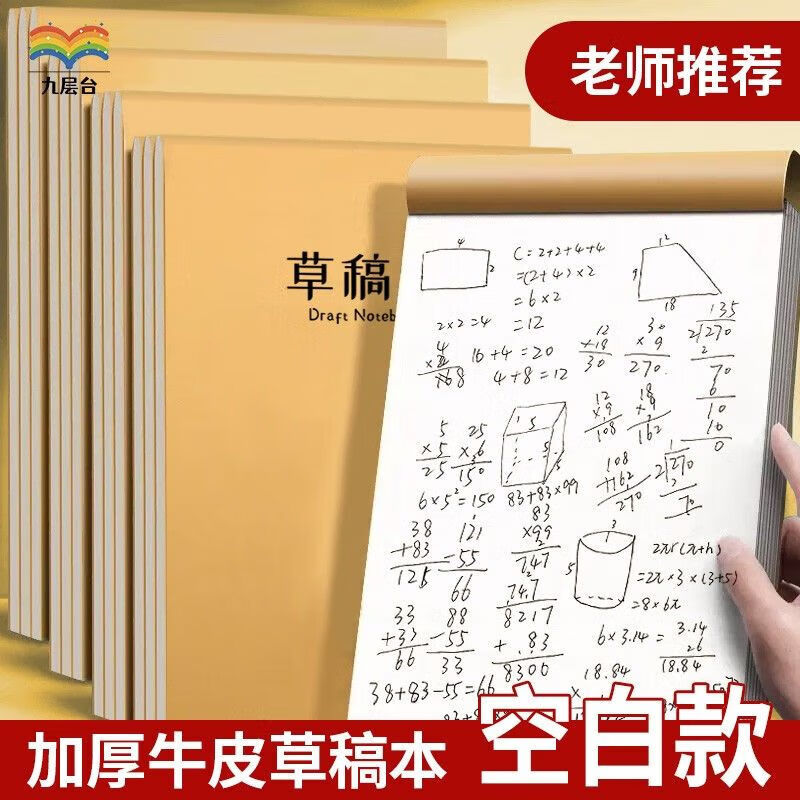 九层台
老师推荐
草稿
Draft Noteb
4
2
C=2+2+4+4
=(2+4)×2
=6×2
=12
12
9
18
2×2=4
16+4=20
4+8=12
12
+18
30
30
×9
270
135
2/270
2
70
6
10
10
0
5
×5
25
25
×6
150
5
5
5
12
×9
108
18
×9
162
6×5²=150
83+83×99
108
+162
270
1
2/270
2
7
38
+83
121
-55
66
83
×99
747
747
8217
+83
8300
3
5
2πr(r+h)
=2π×3×(3+5)
=8×6π
33
+33
66
88
-55
33
6×3.14=
3.14
×6
18.84
38+83-55=66
18.84
加厚牛皮草稿本
空白款